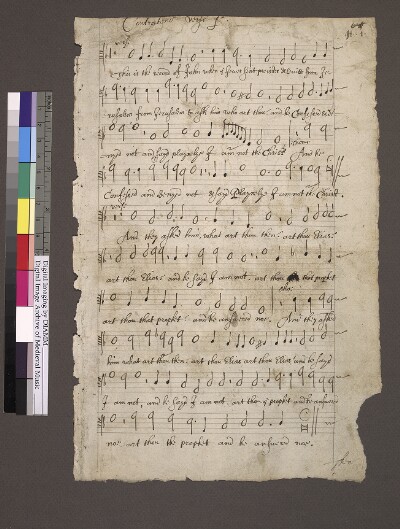 Contratenor verse
verse
This is the record of John when the Jews sent priests & Levites from Je-
rusalem from Jerusalem to ask him who art thou and he Confessed & de-
nyed not and sayd playnely I am not the Christ And he
chorus
Confessed and denyed not & sayd Playnely I am not the Christ.
verse
And they asked him, what art thou then? art thou Elias?
art thou Elias? and he sayd I am not. art thou that prophet
cho:
art thou that prophet? and he answered noe. And they asked
him what art thou then. art thou Elias art thou Elias and he sayd
I am not, and he sayd I am not. art thou the prophet and he answered
noe art thou the prophet and he answered noe.
Digital Imaging by DIAMM
Digital Image Archive of Medieval Music